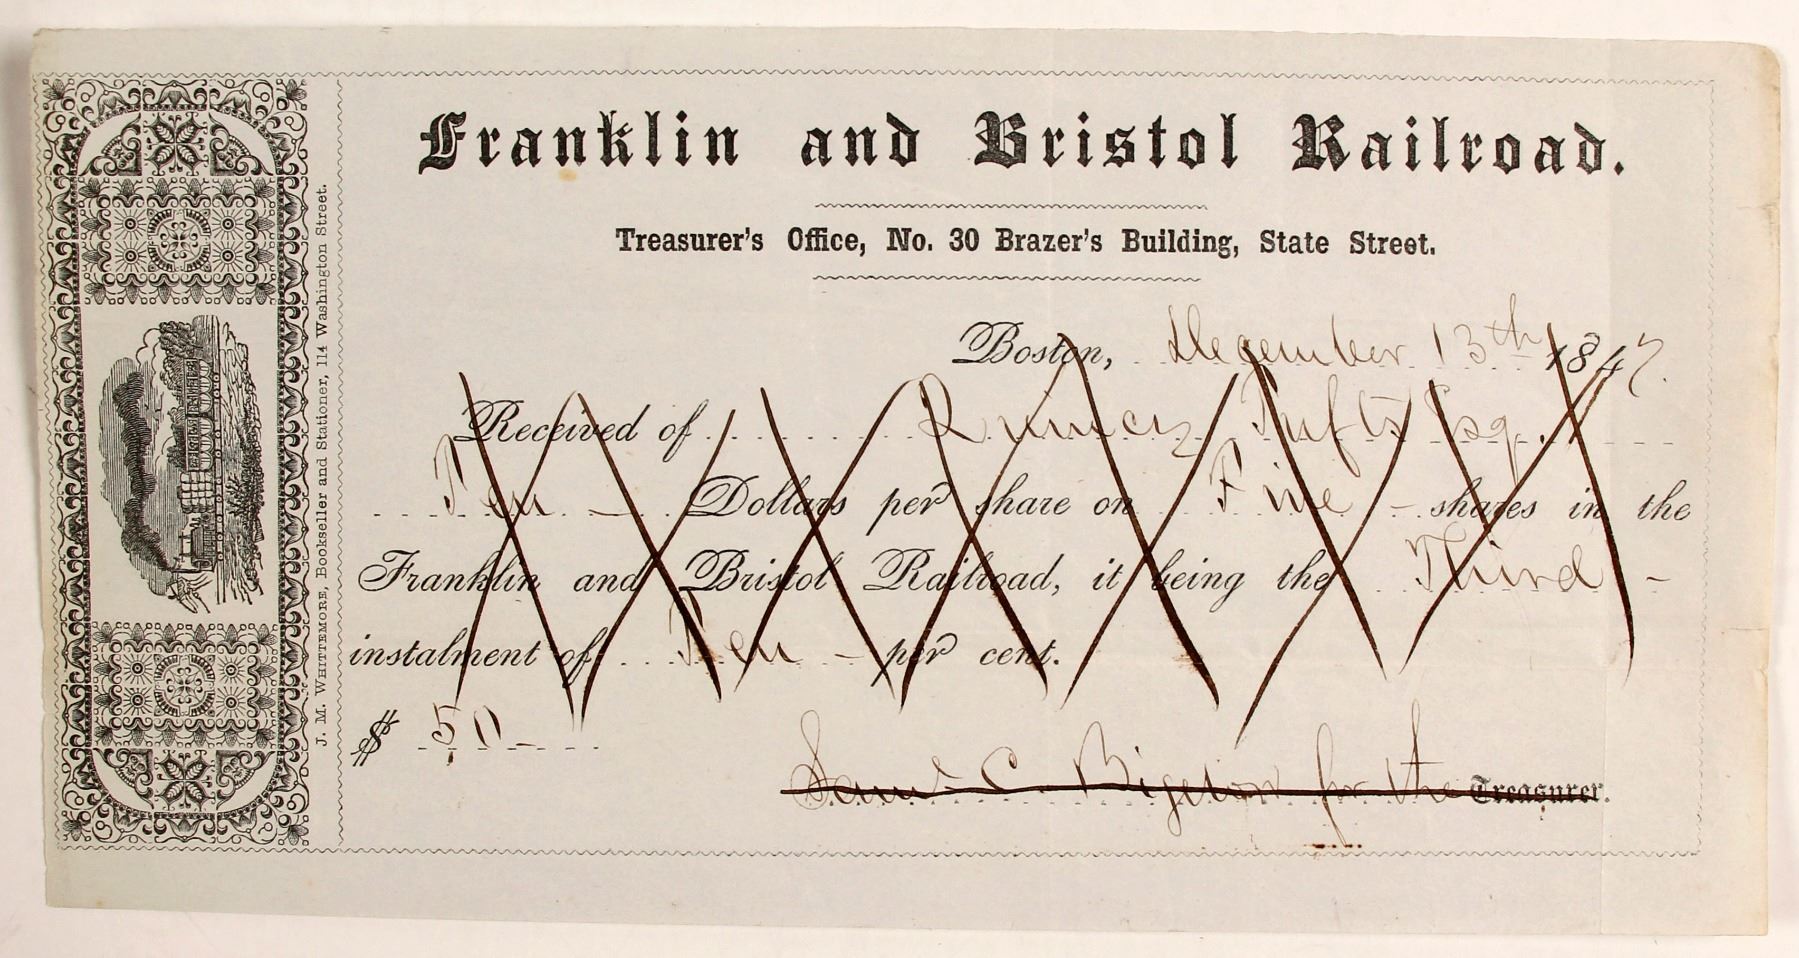 Franklin and Bristol Railroad.
Treasurer's Office, No. 30 Brazer's Building, State Street.
Boston, December 13th 1847.
Received of Quincy Tufts Esq.
Ten Dollars per share on Five shares in the
Franklin and Bristol Railroad, it being the Third
instalment of Ten per cent.
$ 50
Saml C. Bigelow for the Treasurer.
J. M. Whittemore, Bookseller and Stationer, 114 Washington Street.